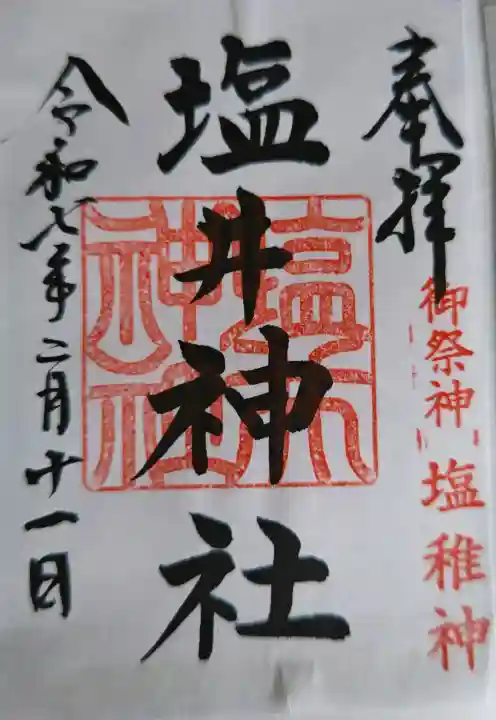 奉拝
御祭神 塩稚神
塩井神社
令和七年二月十一日